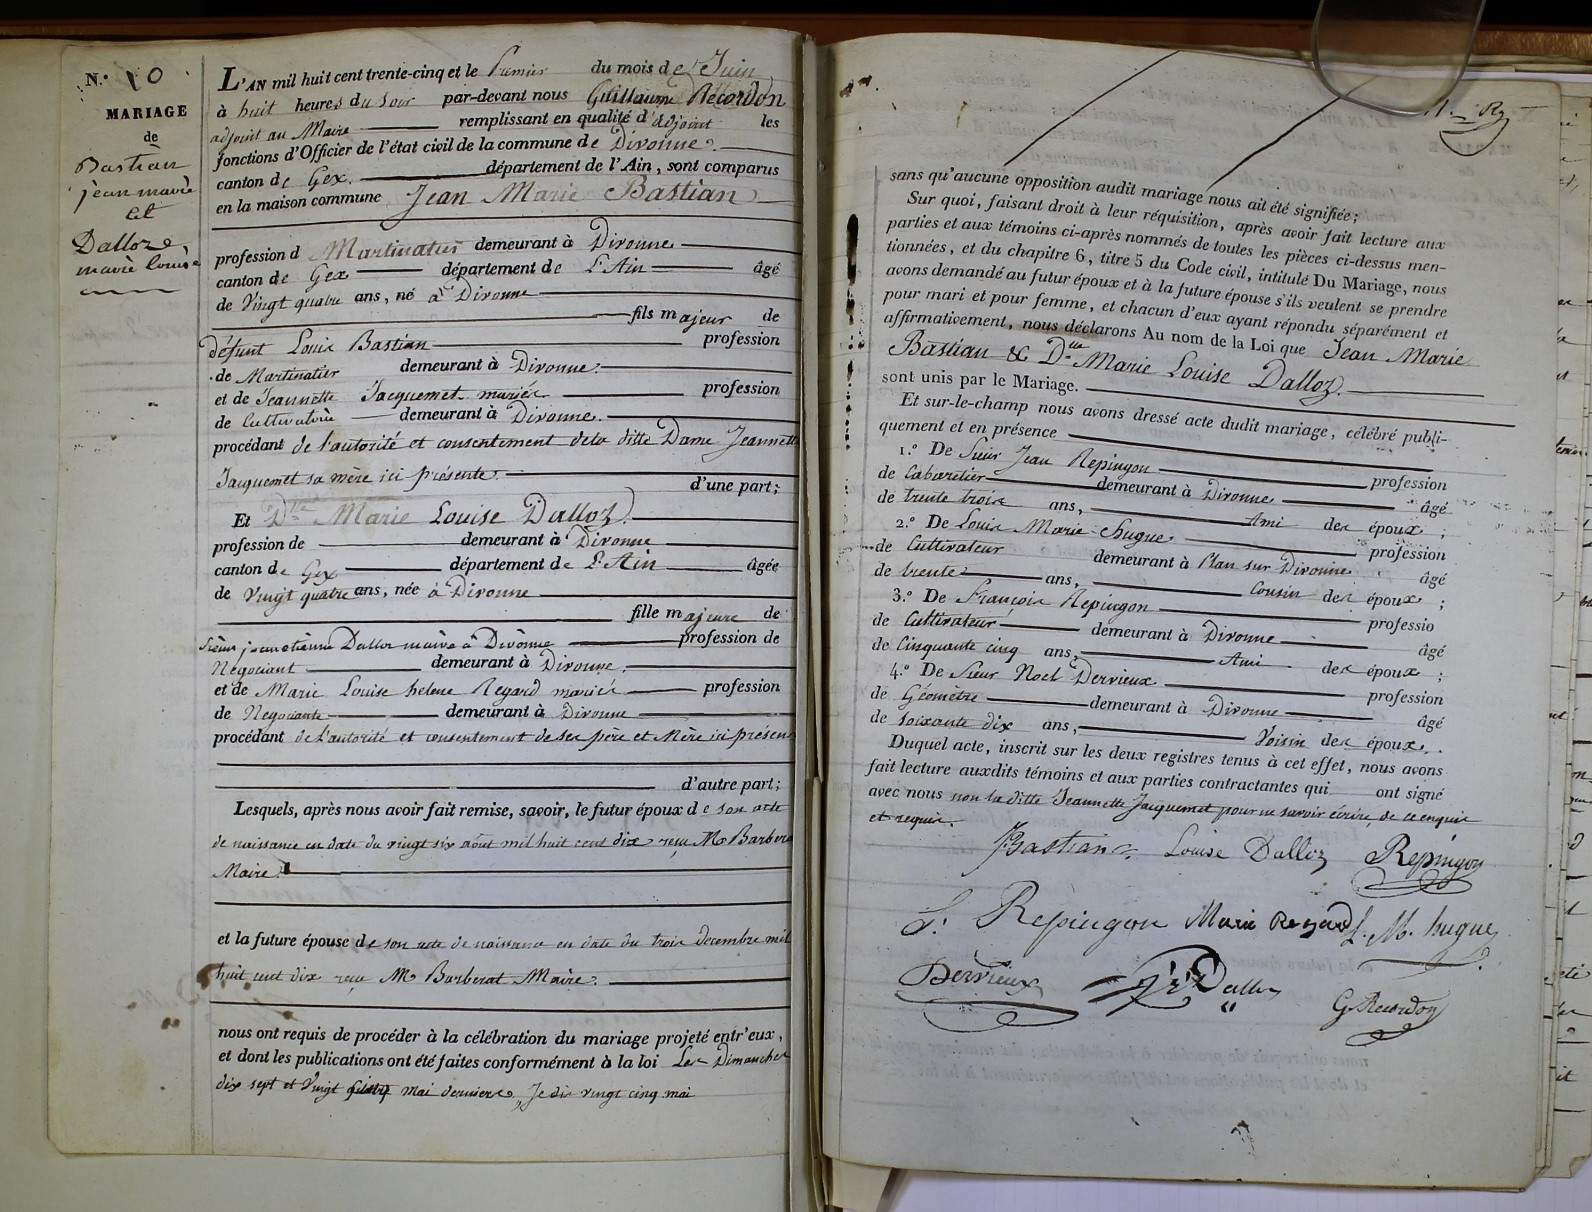 N.° 10
MARIAGE
de
Bastian
jean marie
et
Dalloz,
marie louise
L'AN mil huit cent trente-cinq et le Premier du mois de Juin
à huit heures du soir par-devant nous Guillaume Recordon
adjoint au Maire remplissant en qualité d'adjoint les
fonctions d'Officier de l'état civil de la commune de Divonne.
canton de Gex. département de l'Ain, sont comparus
en la maison commune Jean Marie Bastian
profession d Martinatier demeurant à Divonne
canton de Gex département de l'Ain âgé
de Vingt quatre ans, né à Divonne
fils majeur de
défunt Louis Bastian profession
de Martinatier demeurant à Divonne.
et de Jeannette Jacquemet mariés profession
de Cultivatrice demeurant à Divonne.
procédant de l'autorité et consentement dela ditte Dame Jeannette
Jacquemet sa mère ici présente. d'une part;
Et Dlle Marie Louise Dalloz.
profession de demeurant à Divonne
canton de Gex département de l'Ain âgée
de Vingt quatre ans, née à Divonne
fille majeure de
Sieur jean etienne Dalloz maire à Divonne profession de
Négociant demeurant à Divonne.
et de Marie Louise helene Regard mariés profession
de Negociante demeurant à Divonne
procédant de l'autorité et consentement de ses père et Mère ici présens
d'autre part;
Lesquels, après nous avoir fait remise, savoir, le futur époux de son acte
de naissance en date du vingt six août mil huit cent dix reçu Mr Barberat
Maire.
et la future épouse de son acte de naissance en date du trois decembre mil
huit cent dix reçu Mr Barberat Maire.
nous ont requis de procéder à la célébration du mariage projeté entr'eux,
et dont les publications ont été faites conformément à la loi Les Dimanches
dix sept et Vingt mai derniers, Je dis vingt cinq mai
sans qu'aucune opposition audit mariage nous ait été signifiée;
Sur quoi, faisant droit à leur réquisition, après avoir fait lecture aux
parties et aux témoins ci-après nommés de toutes les pièces ci-dessus men-
tionnées, et du chapitre 6, titre 5 du Code civil, intitulé Du Mariage, nous
avons demandé au futur époux et à la future épouse s'ils veulent se prendre
pour mari et pour femme, et chacun d'eux ayant répondu séparément et
affirmativement, nous déclarons Au nom de la Loi que Jean Marie
Bastian & Dlle Marie Louise Dalloz.
sont unis par le Mariage.
Et sur-le-champ nous avons dressé acte dudit mariage, célébré publi-
quement et en présence
1.° De Sieur Jean Repingon profession
de Cabaretier demeurant à Divonne âgé
de trente trois ans, Ami des époux;
2.° De Louis Marie hugue profession
de Cultivateur demeurant à Plan sur Divonne âgé
de trente ans, Cousin des époux;
3.° De François Repingon professio
de Cultivateur demeurant à Divonne âgé
de Cinquante cinq ans, Ami des époux;
4.° De Sieur Noel Dervieux profession
de Géomètre demeurant à Divonne âgé
de soixante dix ans, Voisin des époux.
Duquel acte, inscrit sur les deux registres tenus à cet effet, nous avons
fait lecture auxdits témoins et aux parties contractantes qui ont signé
avec nous non la ditte Jeannette Jacquemet pour ne savoir écrire, de ce enquise
et requise.
Bastian Louise Dalloz Repingon
f. Repingon Marie Regard L. M. hugue
Dervieux Dalloz G Recordon